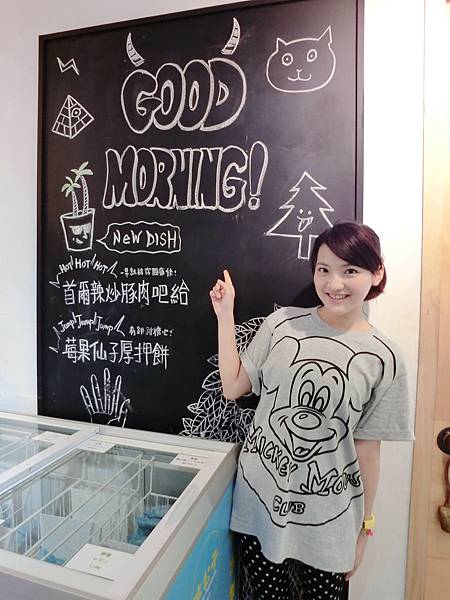 GOOD
MORNING!
NEW DISH
HOT! HOT! HOT!
首爾辣炒豚肉吧給
Jump! Jump! Jump!
莓果仙子厚押餅
MICKEY MOUSE
CLUB